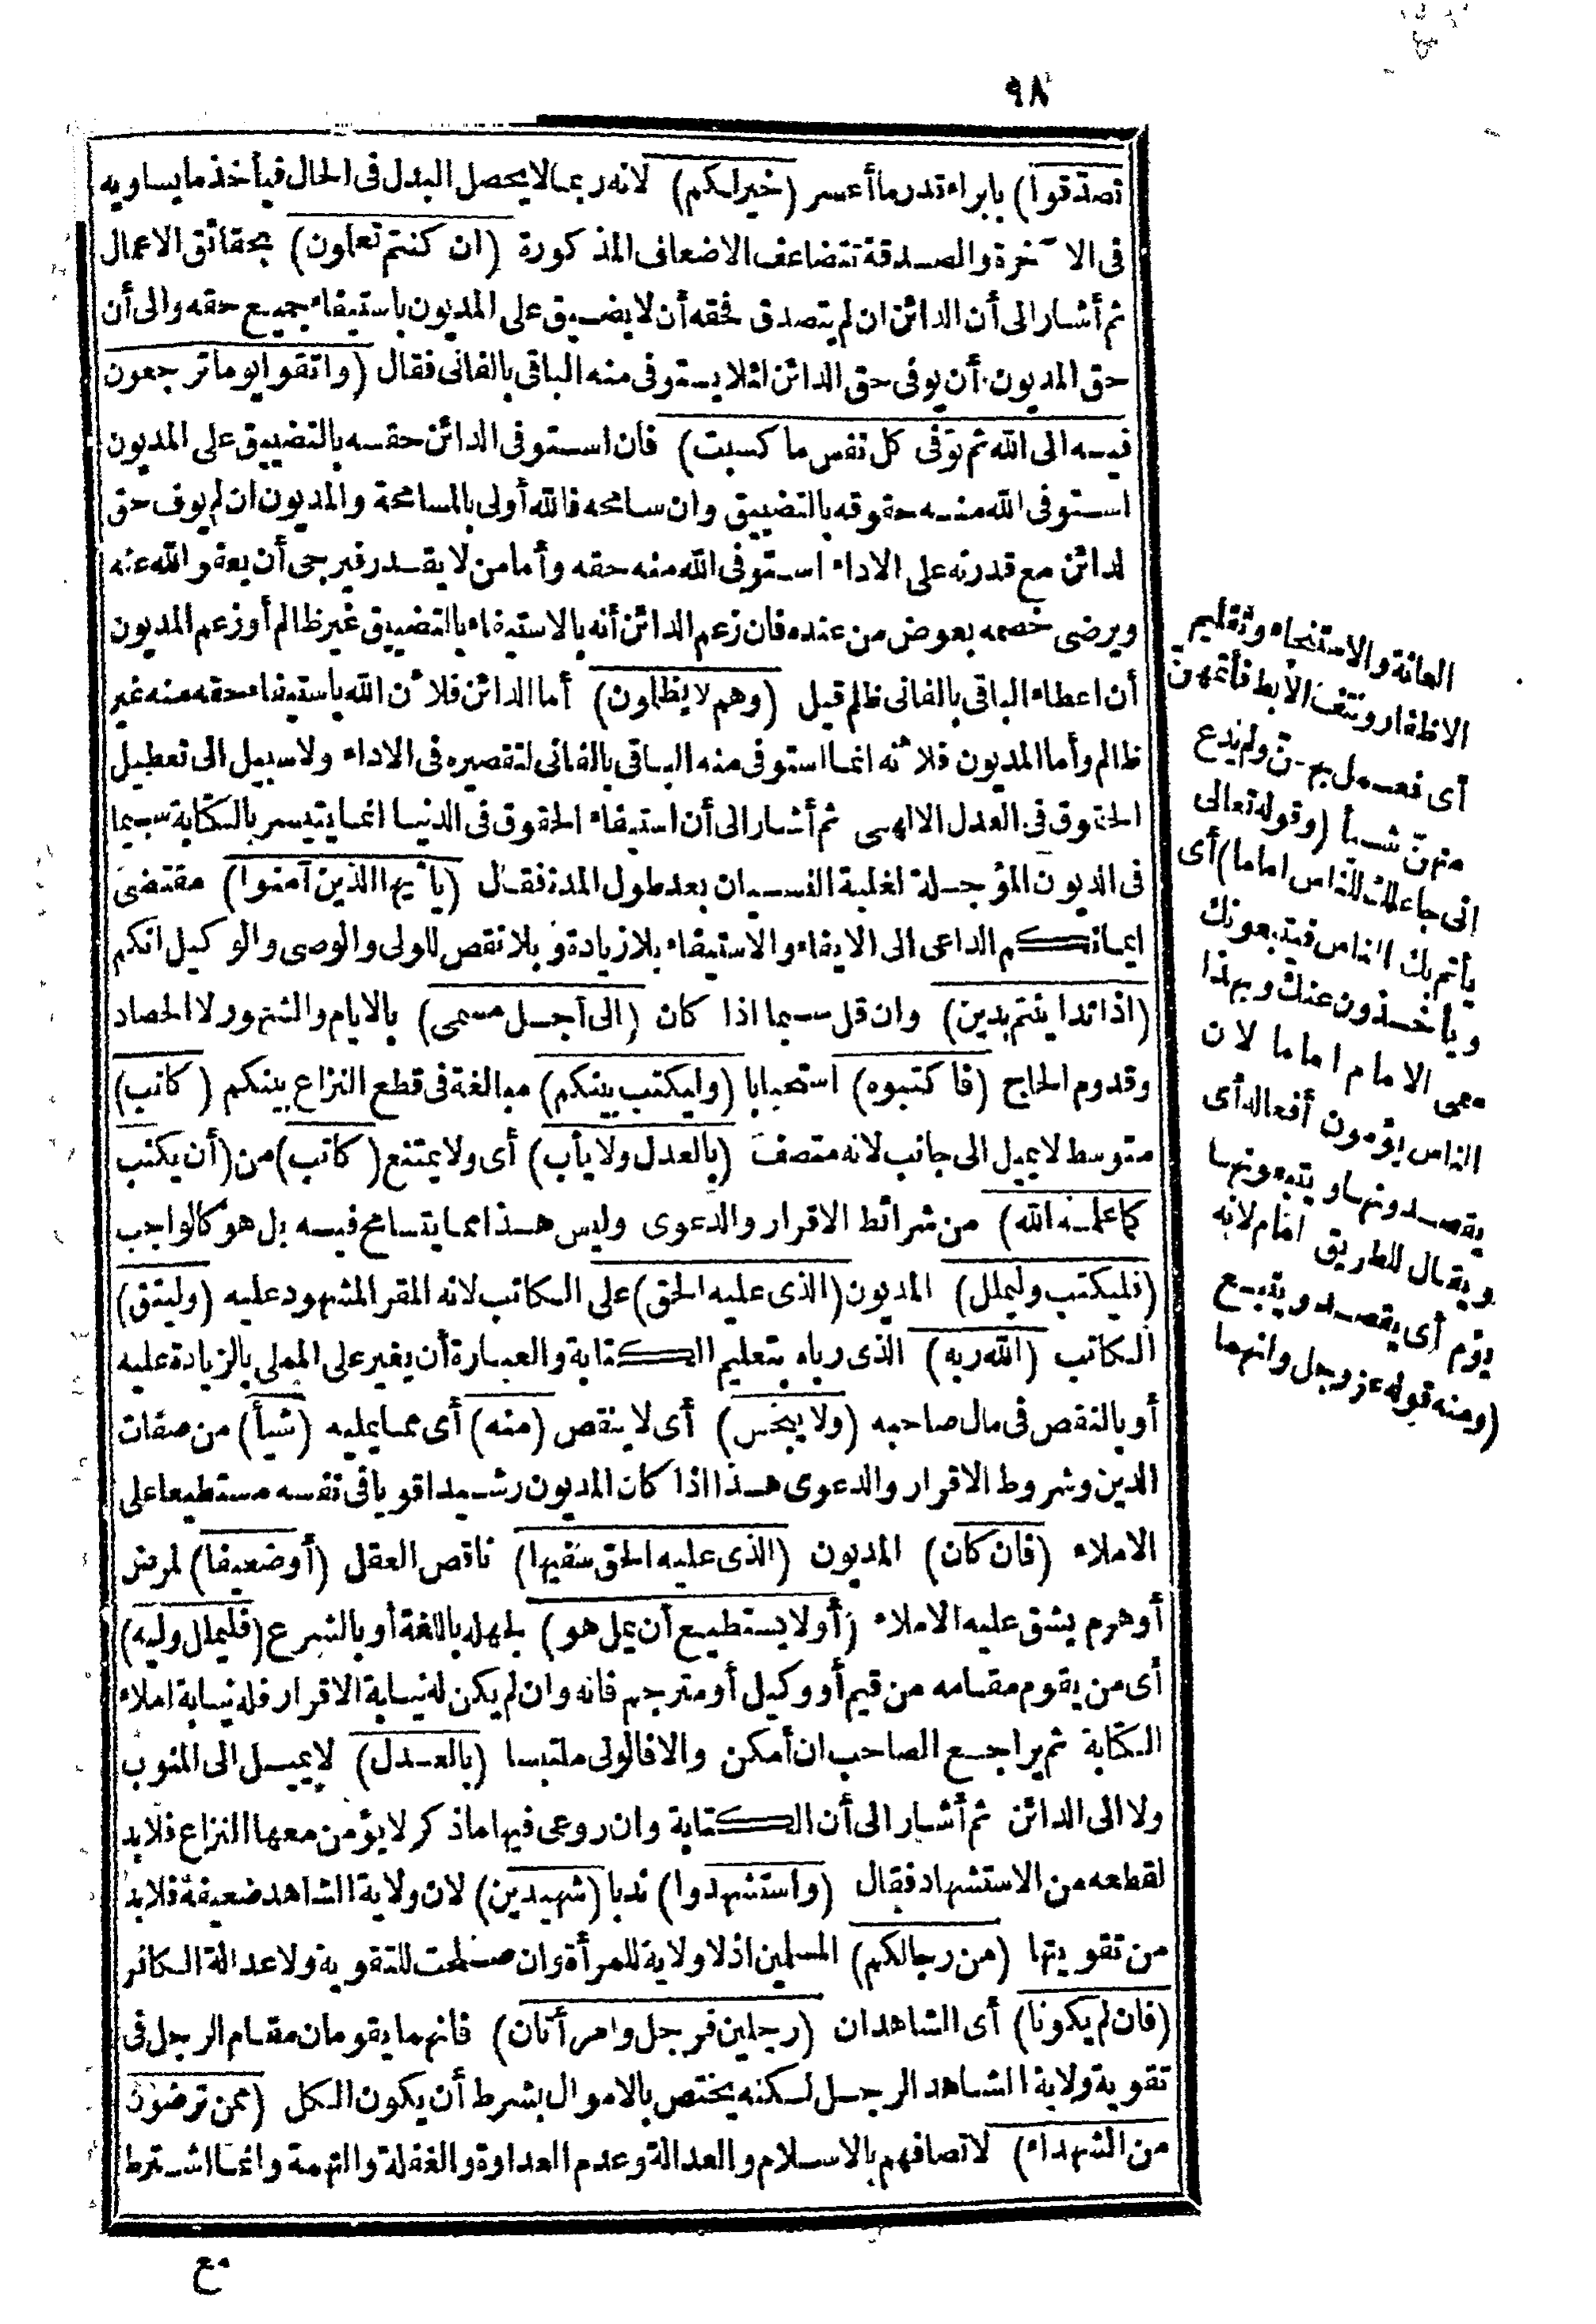 ٩٨
تصدّقوا) بابراء قدر ما أعسر (خير لكم) لانه ربما لا يحصل البدل فى الحال فيأخذ ما يساويه
فى الا خرة والصدقة تتضاعف الاضعاف المذكورة (ان كنتم تعلمون) بحقائق الاعمال
ثم أشار الى أن الدائن ان لم يتصدق فحقه أن لا يضيق على المديون باستيفاء جميع حقه والى أن
حق المديون أن يوفى حق الدائن لئلا يستوفى منه الباقى بالفانى فقال (واتقوا يوما ترجعون
فيه الى الله ثم توفى كل نفس ما كسبت) فان استوفى الدائن حقه بالتضييق على المديون
استوفى الله منه حقوقه بالتضييق وان سامحه فالله أولى بالمسامحة والمديون ان لم يوف حق
لدائن مع قدرته على الاداء استوفى الله منه حقه وأما من لا يقدر فيرجى أن يعفو الله عنه
ويرضى خصمه بعوض من عنده فان زعم الدائن أنه بالاستيفاء بالتضييق غير ظالم أو زعم المديون
أن اعطاء الباقى بالفانى ظلم قيل (وهم لا يظلمون) أما الدائن فلأن الله باستيفاء حقه منه غير
ظالم وأما المديون فلأنه انما استوفى منه الباقى بالفانى لتقصيره فى الاداء ولا سبيل الى تعطيل
الحقوق فى العدل الالهى ثم أشار الى أن استيفاء الحقوق فى الدنيا انما يتيسر بالكتابة سيما
فى الديون المؤجلة لغلبة النسيان بعد طول المدة فقال (يا أيها الذين آمنوا) مقتضى
ايمانكم الداعى الى الايفاء والاستيفاء بلا زيادة وبلا نقص للولى والوصى والوكيل انكم
(اذا تداينتم بدين) وان قل سيما اذا كان (الى أجل مسمى) بالايام والشهور لا الحصاد
وقدوم الحاج (فاكتبوه) استحبابا (وليكتب بينكم) مبالغة فى قطع النزاع بينكم (كاتب)
متوسط لا يميل الى جانب لانه متصف (بالعدل ولا يأب) أى ولا يمتنع (كاتب) من (أن يكتب
كما علمه الله) من شرائط الاقرار والدعوى وليس هذا مما يتسامح فيه بل هو كالواجب
(فليكتب وليملل) المديون (الذى عليه الحق) على الكاتب لانه المقر المشهود عليه (وليتق)
الكاتب (الله ربه) الذى رباه بتعليم الكتابة والعبارة أن يغير على المملى بالزيادة عليه
أو بالنقص فى مال صاحبه (ولا يبخس) أى لا ينقص (منه) أى مما يمليه (شيأ) من صفات
الدين وشروط الاقرار والدعوى هذا اذا كان المديون رشيدا قويا فى نفسه مستطيعا على
الاملاء (فان كان) المديون (الذى عليه الحق سفيها) ناقص العقل (أو ضعيفا) لمرض
أو هرم يشق عليه الاملاء (أو لا يستطيع أن يمل هو) لجهله باللغة أو بالشرع (فليملل وليه)
أى من يقوم مقامه من قيم أو وكيل أو مترجم فانه وان لم يكن له نيابة الاقرار فله نيابة املاء
الكتابة ثم يراجع الصاحب ان أمكن والا فالولى ملتبسا (بالعدل) لا يميل الى المنوب
ولا الى الدائن ثم أشار الى أن الكتابة وان روعى فيها ما ذكر لا يؤمن معها النزاع فلا بد
لقطعه من الاستشهاد فقال (واستشهدوا) ندبا (شهيدين) لان ولاية الشاهد ضعيفة فلا بد
من تقويتها (من رجالكم) المسلمين اذ لا ولاية للمرأة وان صلحت للتقوية ولا عدالة الكافر
(فان لم يكونا) أى الشاهدان (رجلين فرجل وامرأتان) فانهما يقومان مقام الرجل فى
تقوية ولاية الشاهد الرجل لكنه يختص بالاموال بشرط أن يكون الكل (ممن ترضون
من الشهداء) لاتصافهم بالاسلام والعدالة وعدم العداوة والغفلة والتهمة وانما اشترط
مع
العانة والاستنجاء وتقليم
الاظفار ونتف الابط فأتمهن
أى فعمل بهن ولم يدع
منهن شيأ (وقوله تعالى
انى جاعلك للناس اماما) أى
يأتم بك الناس فيتبعونك
ويأخذون عنك وبهذا
سمى الامام اماما لان
الناس يؤمون أفعاله أى
يقصدونها ويتبعونها
ويقال للطريق امام لانه
يؤم أى يقصد ويتبع
(ومنه قوله عز وجل وانهما